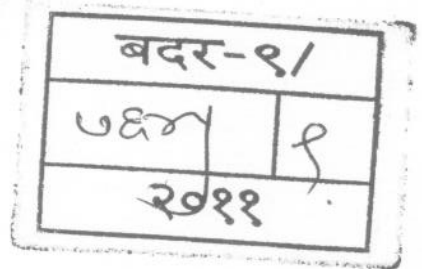 बदर-९/
७६५ १
२०११